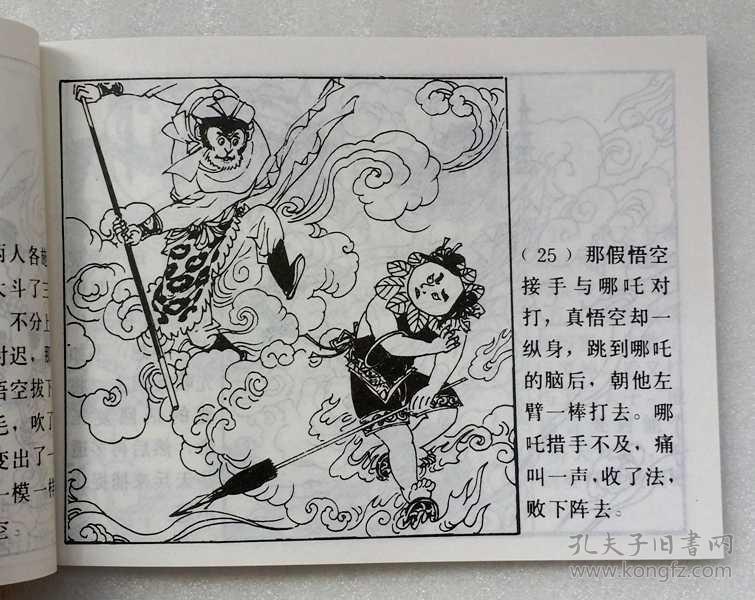 两人各
大斗了
不分上
时迟，那
悟空拔下
毛，吹了
变出了一
一模一样
空。
（25）那假悟空
接手与哪吒对
打，真悟空却一
纵身，跳到哪吒
的脑后，朝他左
臂一棒打去。哪
吒措手不及，痛
叫一声，收了法，
败下阵去。
孔夫子旧书网
www.kongfz.com